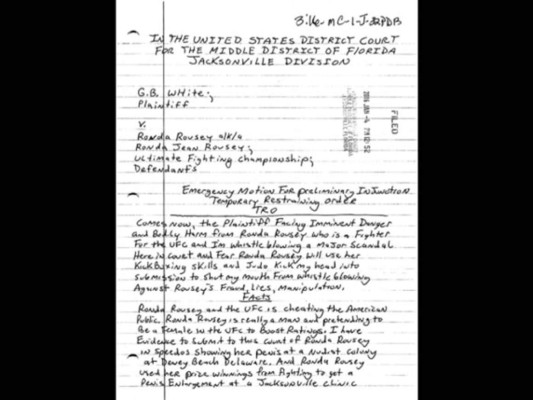 3:16-mc-1-J-32PDB
IN THE UNITED STATES DISTRICT COURT
FOR THE MIDDLE DISTRICT OF FLORIDA
JACKSONVILLE DIVISION
G.B. White;
Plaintiff
V.
Ronda Rousey a/k/a
Ronda Jean Rousey;
Ultimate Fighting Championship;
Defendants
FILED
Emergency Motion For Preliminary Injunction
Temporary Restraining Order
TRO
Comes now, the Plaintiff Facing Imminent Danger
and Bodily Harm from Ronda Rousey who is a Fighter
For the UFC and Im whistle blowing a Major Scandal
Here in Court and Fear Ronda Rousey will use her
KickBoxing skills and Judo Kick my head into
Submission to shut my Mouth From whistle blowing
Against Rousey's Fraud, Lies, Manipulation.
Facts
Ronda Rousey and the UFC is cheating the American
Public. Ronda Rousey is really a Man and pretending to
Be a Female in the UFC to Boost Ratings. I have
Evidence to submit to this court of Ronda Rousey
in speedos showing her penis at a Nudist colony
at Dewey Beach Delaware. And Ronda Rousey
used her prize winnings from Fighting to get a
Penis Enlargement at a Jacksonville clinic